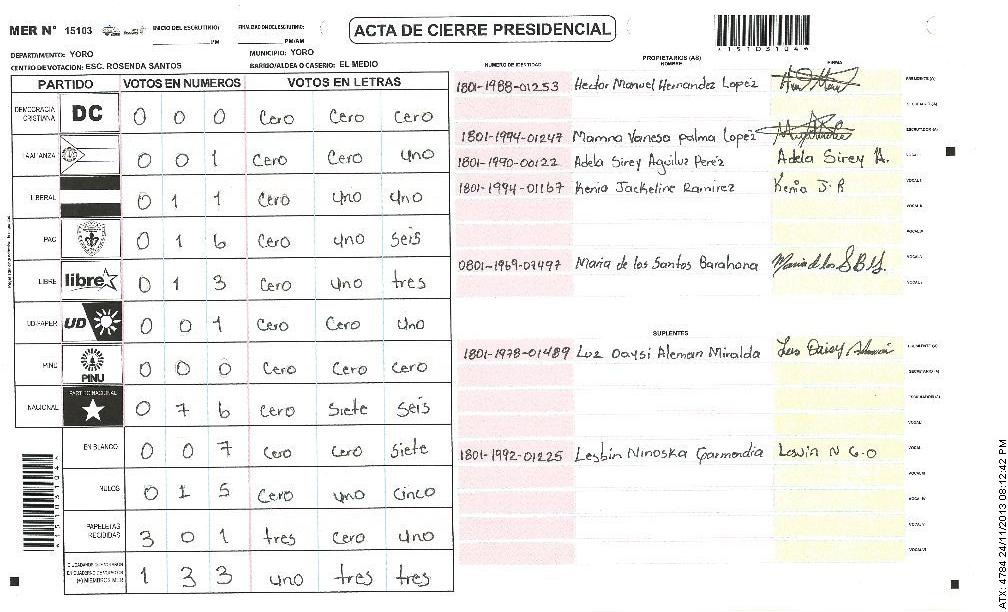 MER Nº 15103
INICIO DEL ESCRUTINIO:
PM
FINALIZACION DEL ESCRUTINIO:
PM/AM
ACTA DE CIERRE PRESIDENCIAL
DEPARTAMENTO: YORO
MUNICIPIO: YORO
CENTRO DE VOTACION: ESC. ROSENDA SANTOS
BARRIO/ALDEA O CASERIO: EL MEDIO
PARTIDO VOTOS EN NUMEROS VOTOS EN LETRAS
DEMOCRACIA CRISTIANA DC 0 0 0 Cero Cero Cero
LA ALIANZA 0 0 1 Cero Cero uno
LIBERAL 0 1 1 Cero uno uno
PAC 0 1 6 Cero uno seis
LIBRE libre 0 1 3 Cero uno tres
UD-FAPER UD 0 0 1 Cero Cero uno
PINU PINU 0 0 0 Cero Cero Cero
NACIONAL PARTIDO NACIONAL 0 7 6 Cero Siete seis
EN BLANCO 0 0 7 Cero Cero Siete
NULOS 0 1 5 Cero uno cinco
PAPELETAS RECIBIDAS 3 0 1 tres Cero uno
(+) MIEMBROS MER 1 3 3 uno tres tres
PROPIETARIOS (AS)
NUMERO DE IDENTIDAD NOMBRE FIRMA
1801-1988-01253 Hector Manuel Hernandez Lopez PRESIDENTE(A)
SECRETARIO (A)
1801-1994-01247 Vanesa palma Lopez ESCRUTADOR (A)
1801-1990-00122 Adela Sirey Aguiluz Perez Adela Sirey A. VOCAL I
1801-1994-01167 Kenia Jackeline Ramirez Kenia J.R
0801-1969-07497 Maria de los Santos Barahona Maria de los S.B
SUPLENTES
1801-1978-01489 Luz Daysi Aleman Miralda
SECRETARIO (A)
ESCRUTADOR (A)
1801-1992-01225 Lesbin Ninoska Garmendia
A15103104A
ATX: 4784 24/11/2013 08:12:42 PM